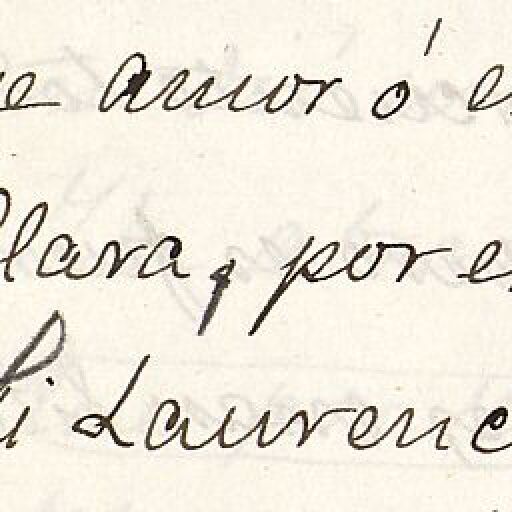 e amor ó e
Clara, por e
i Laurenc